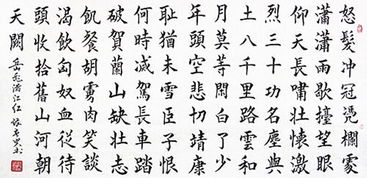 怒髮冲冠凴欄處
瀟瀟雨歇擡望眼
仰天長嘯壯懷激
烈三十功名塵與
土八千里路雲和
月莫等閒白了少
年頭空悲切靖康
恥猶未雪臣子恨
何時減駕長車踏
破賀蘭山缺壯志
飢餐胡虜肉笑談
渴飲匈奴血從待
頭收拾舊山河朝
天闕
岳飛滿江红